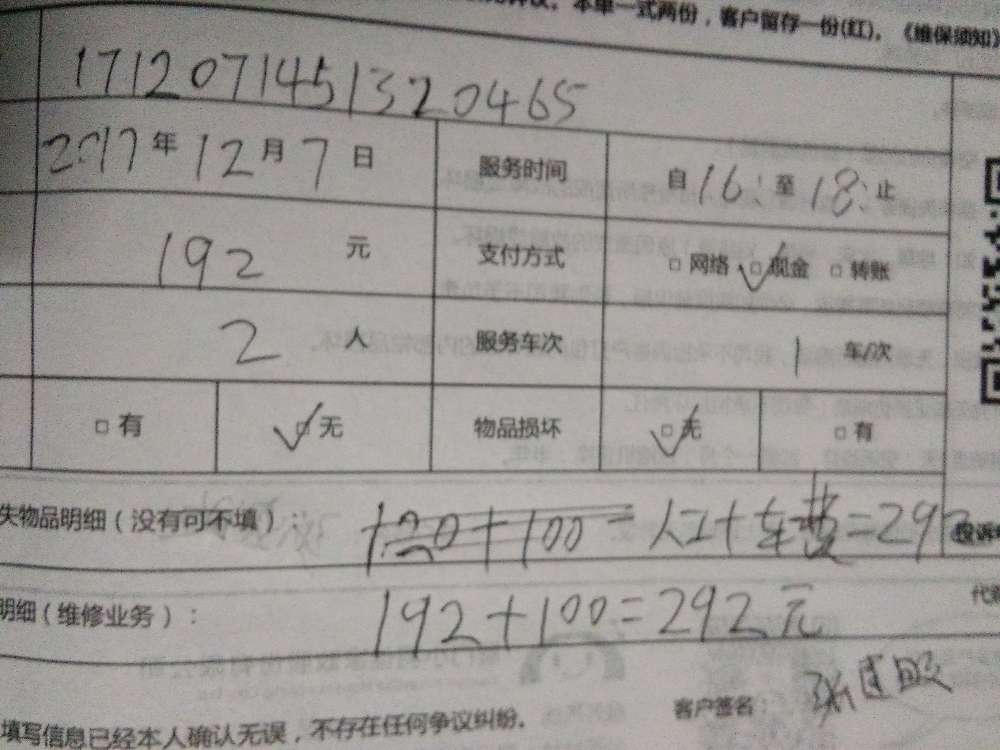 本单一式两份，客户留存一份(红)。《维保须知》
171207145132 0465
2017年12月7日 服务时间 自16：至18：止
192元 支付方式 □网络 ☑现金 □转账
2人 服务车次 1车/次
□有 ☑无 物品损坏 ☑无 □有
失物品明细（没有可不填）： 120+100=人工+车费=292 投诉
明细（维修业务）： 192+100=292元
客户签名：
填写信息已经本人确认无误，不存在任何争议纠纷.